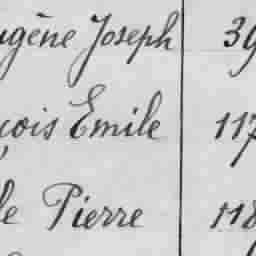 ugène Joseph 39
çois Emile 117
le Pierre 118